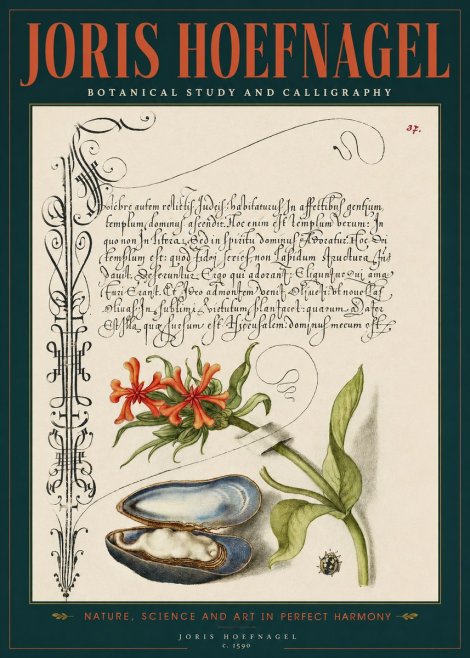 JORIS HOEFNAGEL
BOTANICAL STUDY AND CALLIGRAPHY
37.
autem relictis Judeis, habitaturus In affectibus gentium
templum dominus ascendit. Hoc enim est templum verum: In
quo non In litera, Sed in spiritu dominus Adoratur. Hoc Dei
templum est: quod fidei series non Lapidum structura
dauit. Deseruntur Ergo qui adorant: Eliguntur qui ama
turi Erant. Et Ideo ad montem venit Oliueti: vt nouellas
Oliuas In sublimi plantaret: quarum Mater
Est illa, quæ sursum est Hierusalem: dominus mecum est.
NATURE, SCIENCE AND ART IN PERFECT HARMONY
JORIS HOEFNAGEL
c. 1590